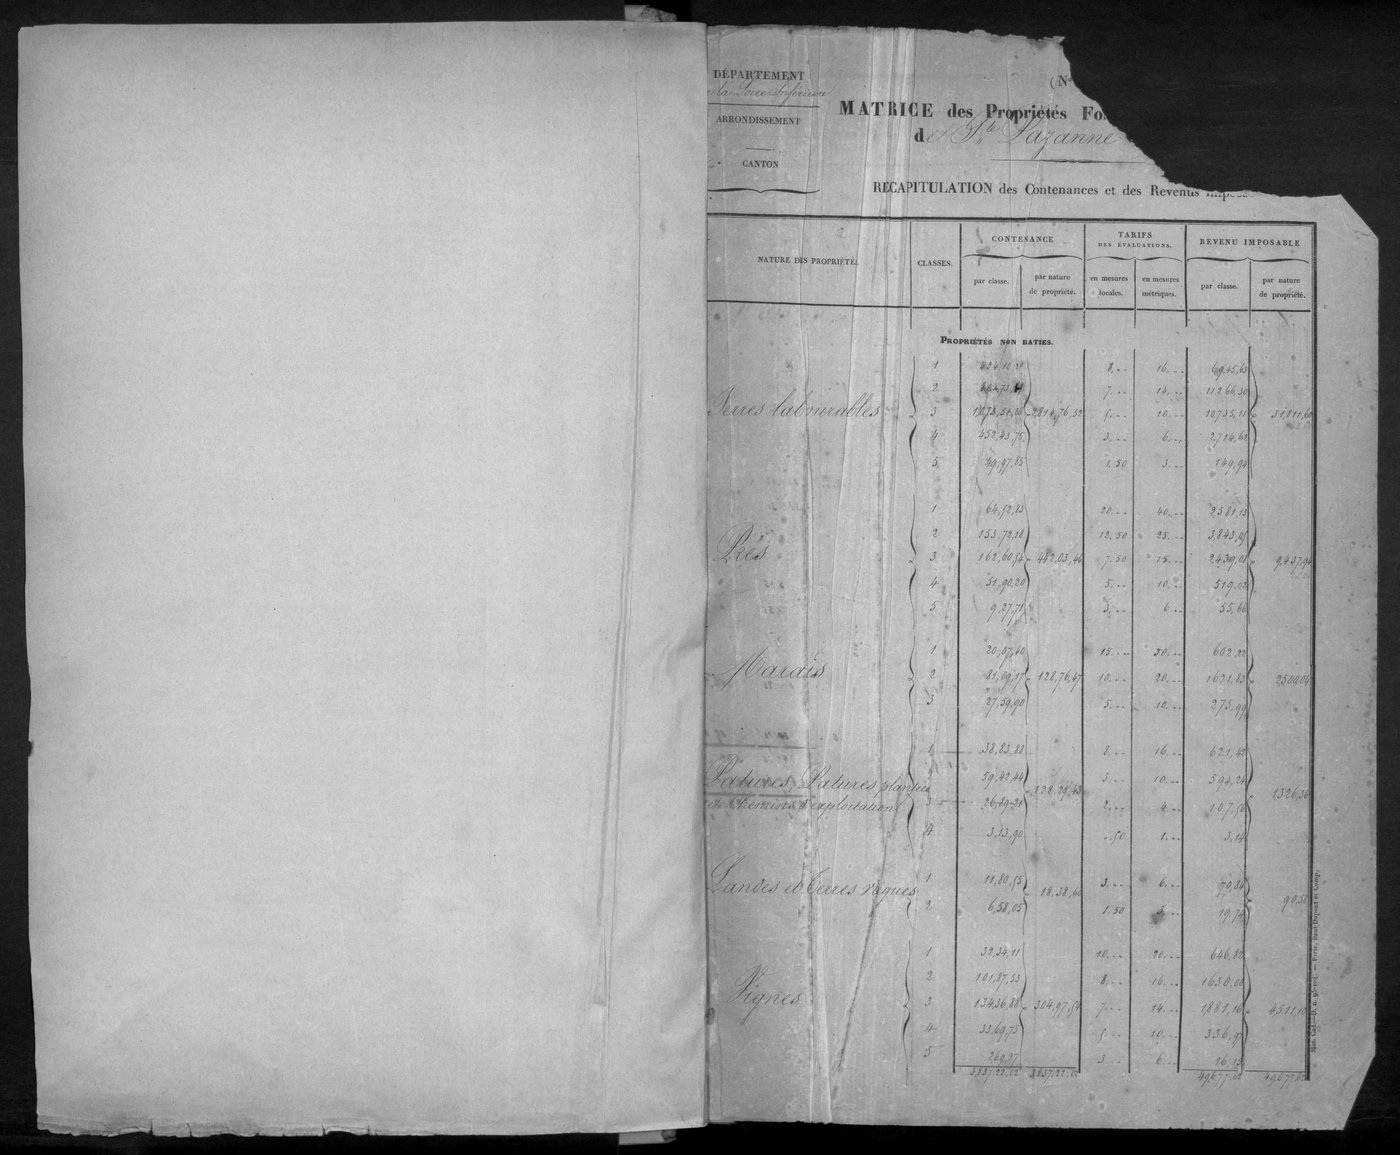 DÉPARTEMENT
de la Loire Inférieure
ARRONDISSEMENT
CANTON
(N°
MATRICE des Propriétés Fon
de Ste Pazanne
RECAPITULATION des Contenances et des Revenus Imposa
NATURE DES PROPRIÉTÉS.
CLASSES.
CONTENANCE
par classe.
par nature de propriété.
TARIFS
DES ÉVALUATIONS.
en mesures locales.
en mesures métriques.
REVENU IMPOSABLE
par classe.
par nature de propriété.
PROPRIÉTÉS NON BATIES.
Terres labourables
1 8... 16... 6945,63
2 7... 14... 11,266,30
3 1073,51,06 2814,76,52 5... 10... 10,735,11 31,811,60
4 452,43,75 3... 6... 2714,62
5 49,97,85 1.50 3... 149,94
Prés
1 64,52,83 20... 40... 2581,13
2 153,72,18 12,50 25... 3,843,05
3 162,60,54 442,03,46 7.50 15... 2439,08 9,437,94
4 51,90,20 5... 10... 519,02
5 9,27,71 3... 6... 55,66
Marais
1 20,07,40 15... 30... 602,22
2 81,09,17 128,76,47 10... 20... 1631,83 2509,04
3 27,59,90 5... 10... 275,99
Patures, Patures plantées
et Chemins d'exploitation
1 38,83,88 8... 16... 621,42
59,42,44 5... 10... 594,24
3 26,89,21 128,29,43 2... 4... 107,56 1326,36
4 3,13,90 .50 1... 3,14
Landes et Terres vagues
1 11,80,55 18,38,60 3... 6... 70,84 90,58
2 6,58,05 1.50 3... 19,74
Vignes
1 32,34,11 10... 20... 646,82
2 101,87,53 8... 16... 1630,00
3 134,36,88 304,97,54 7... 14... 1881,16 4511,10
4 33,69,75 5... 10... 336,97
5 2,69,27 3... 6... 16,15
3837,22,02 3837,22,02 49,677,62 49,677,62
Mat. Cad.—D. n. 95-104. — Paris, Paul Dupont et Comp.